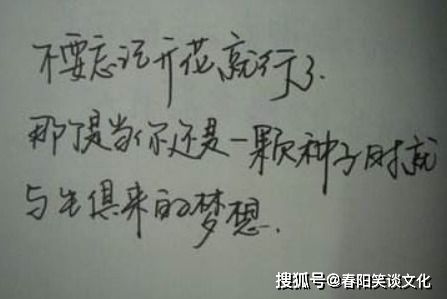 不要忘记开花就行了.
那可是当你还是一颗种子时就
与生俱来的梦想.
搜狐号@春阳笑谈文化